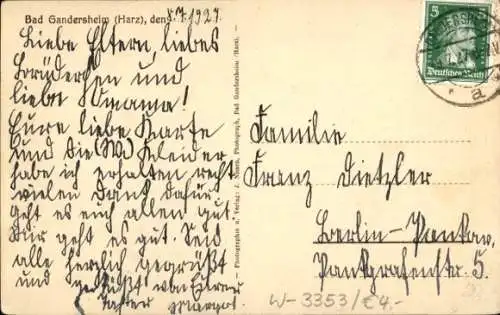 Bad Gandersheim (Harz), den 8.7.1927
Liebe Eltern, liebes
Brüderchen und
liebe Omama!
Eure liebe Karte
und die (W) Kleider
habe ich erhalten recht
vielen Dank dafür.
geht es euch allen gut.
Mir geht es gut. Seid
alle herzlich gegrüßt
und geküßt von Eurer
Tochter Margot.
Photographie u. Verlag: J. Photograph, Bad Gandersheim (Harz).
5
Deutsches Reich
a
Familie
Franz Dietzler
Berlin-Pankow
Pankgrafenstr. 5.
W-3353/€4.-